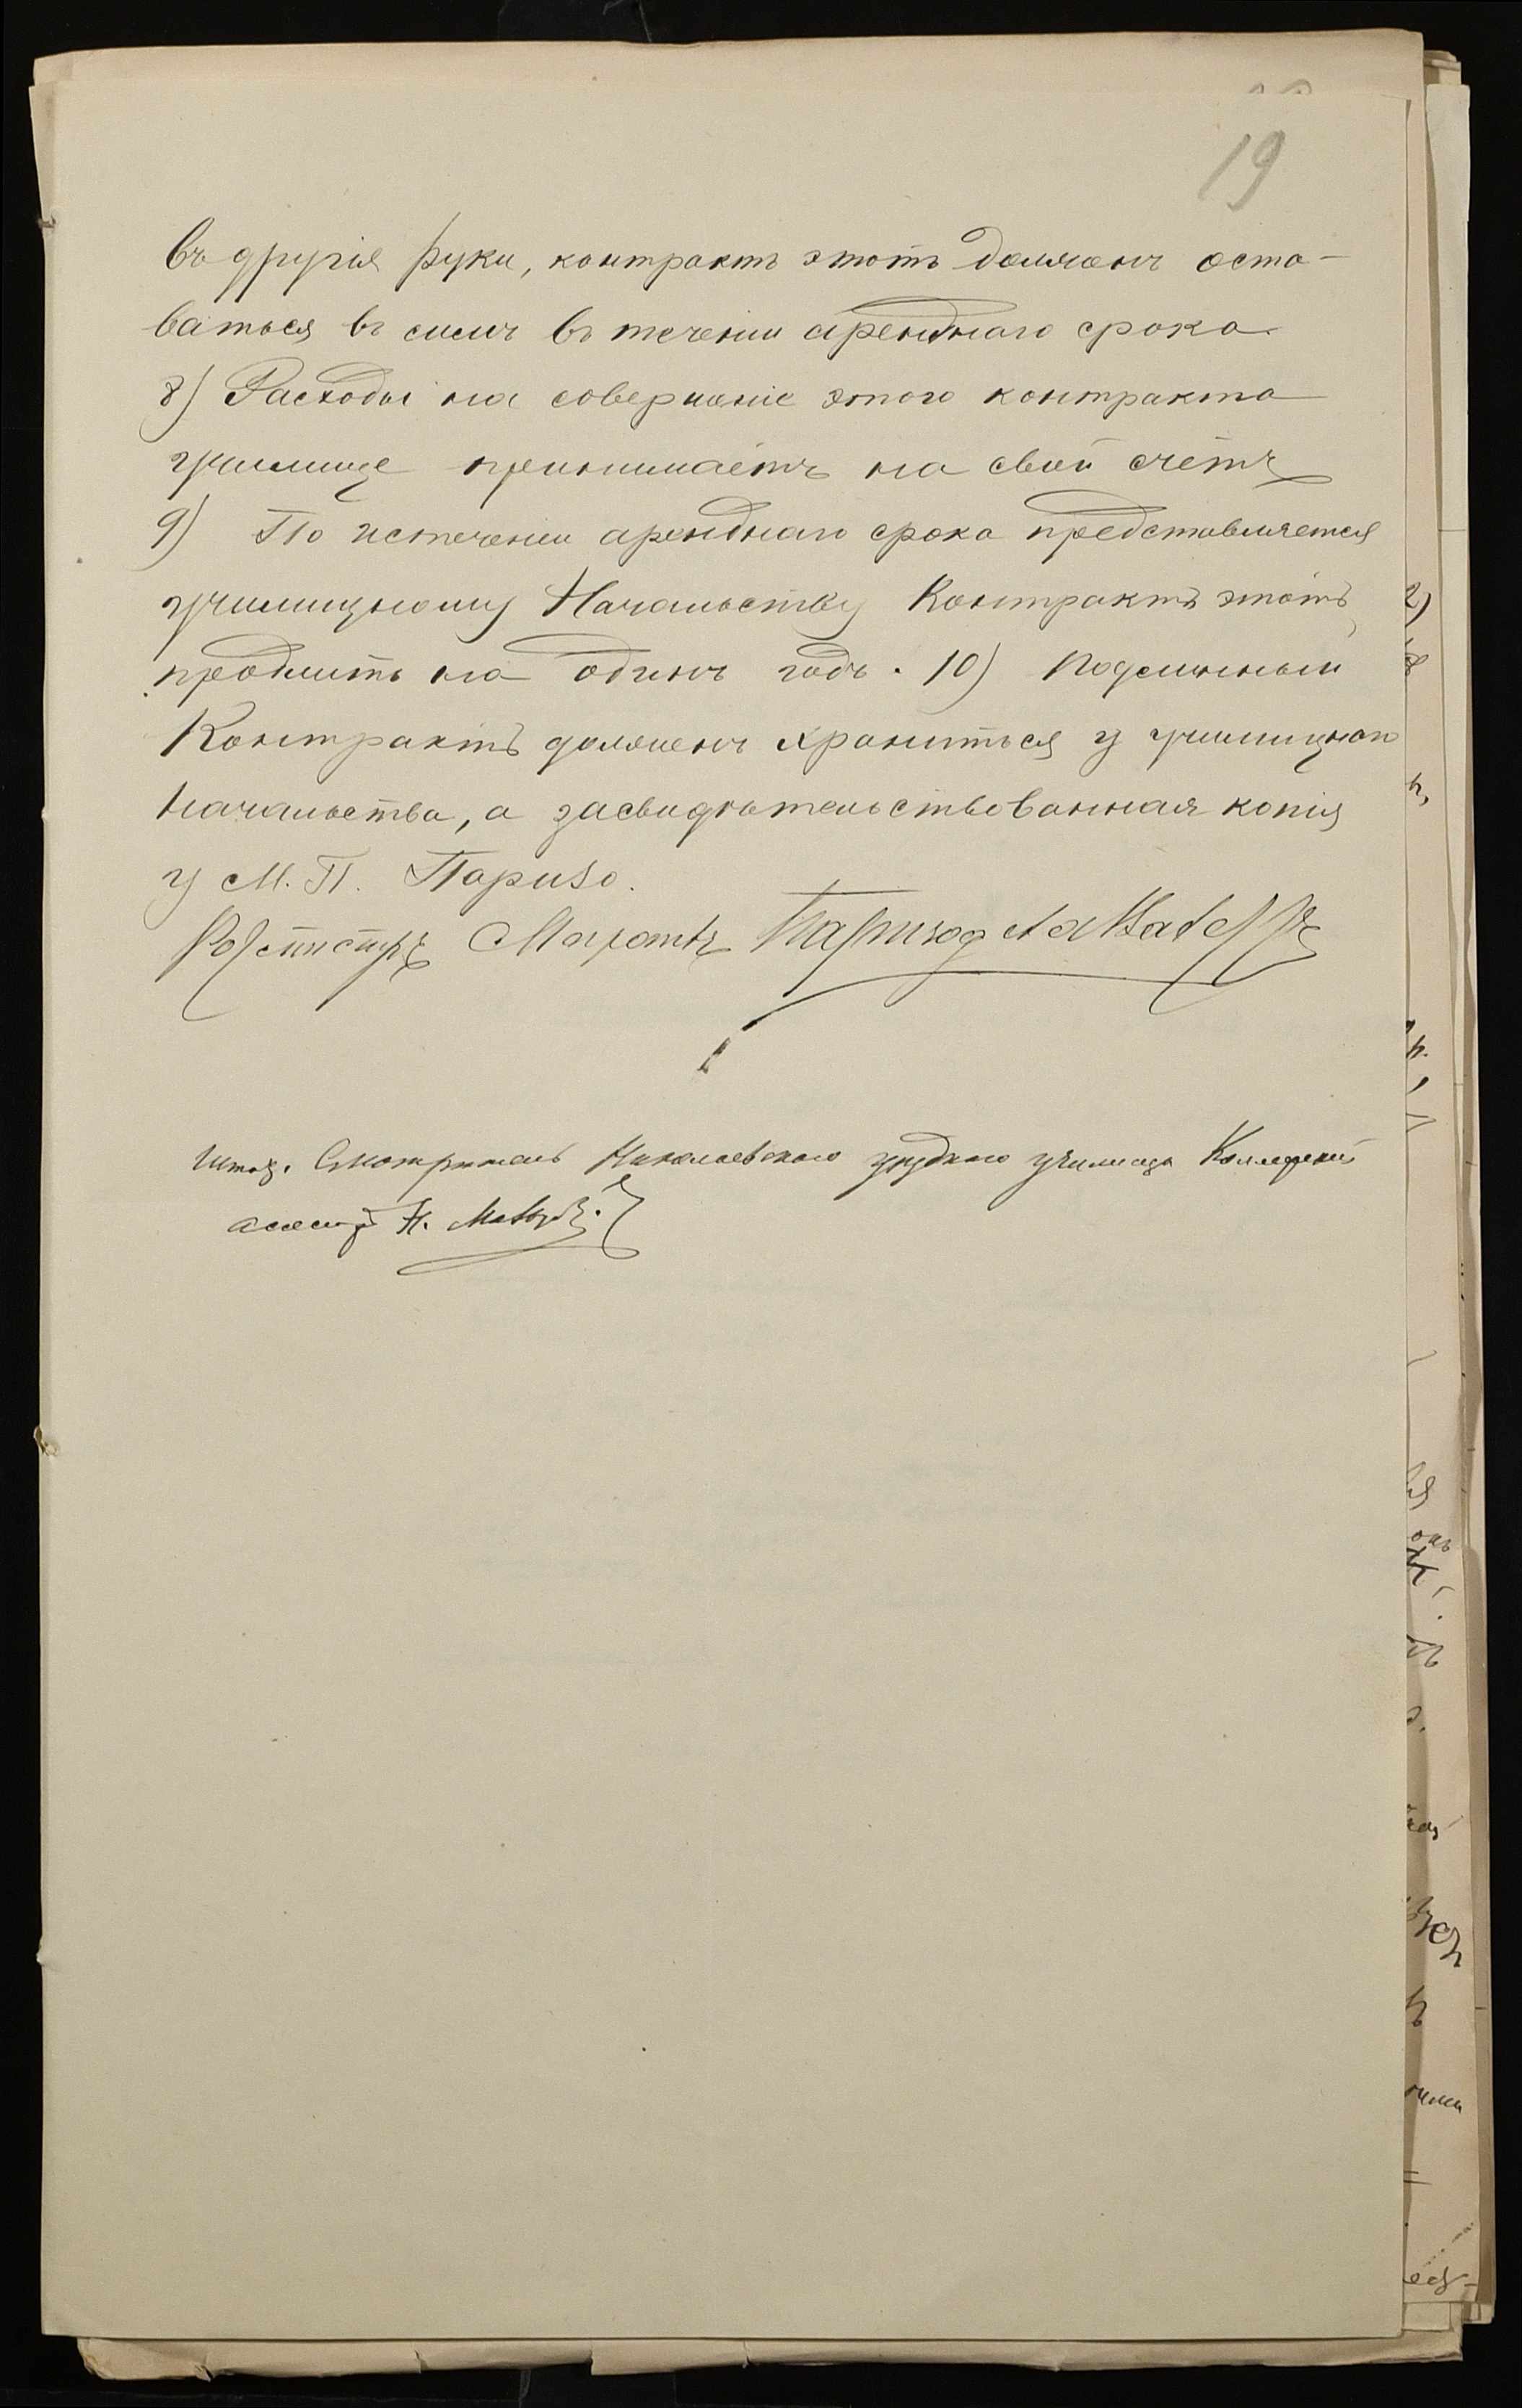 19
въ другія руки, контрактъ этотъ долженъ оста-
ваться въ силѣ въ теченіи аренднаго срока.
8) Расходы на совершеніе этого контракта
училище принимаетъ на свой счетъ
9) По истеченіи аренднаго срока представляется
училищному Начальству Контрактъ этотъ
продлить на одинъ годъ. 10) Подлинный
Контрактъ долженъ храниться у училищнаго
Начальства, а засвидѣтельствованная копія
у М. П. Паризо.
Ротмистръ
Штат. Смотритель Николаевскаго уѣзднаго училища Коллежскій
асессоръ Н.